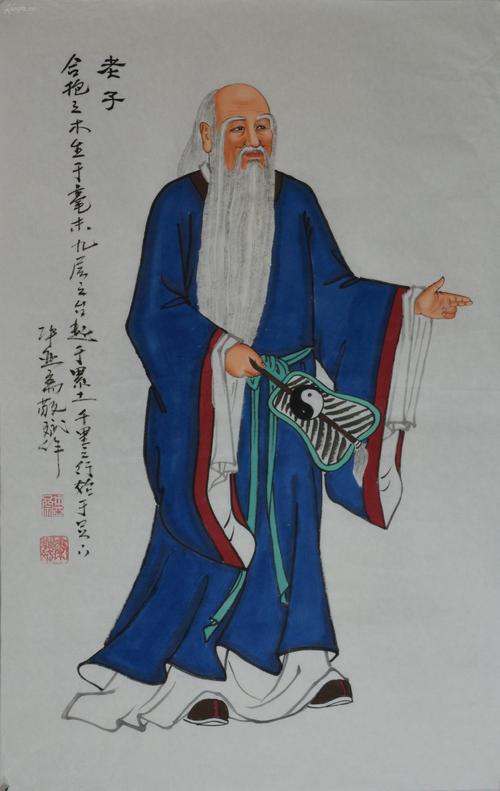 老子
合抱之木生于毫末九层之台起于累土千里之行始于足下